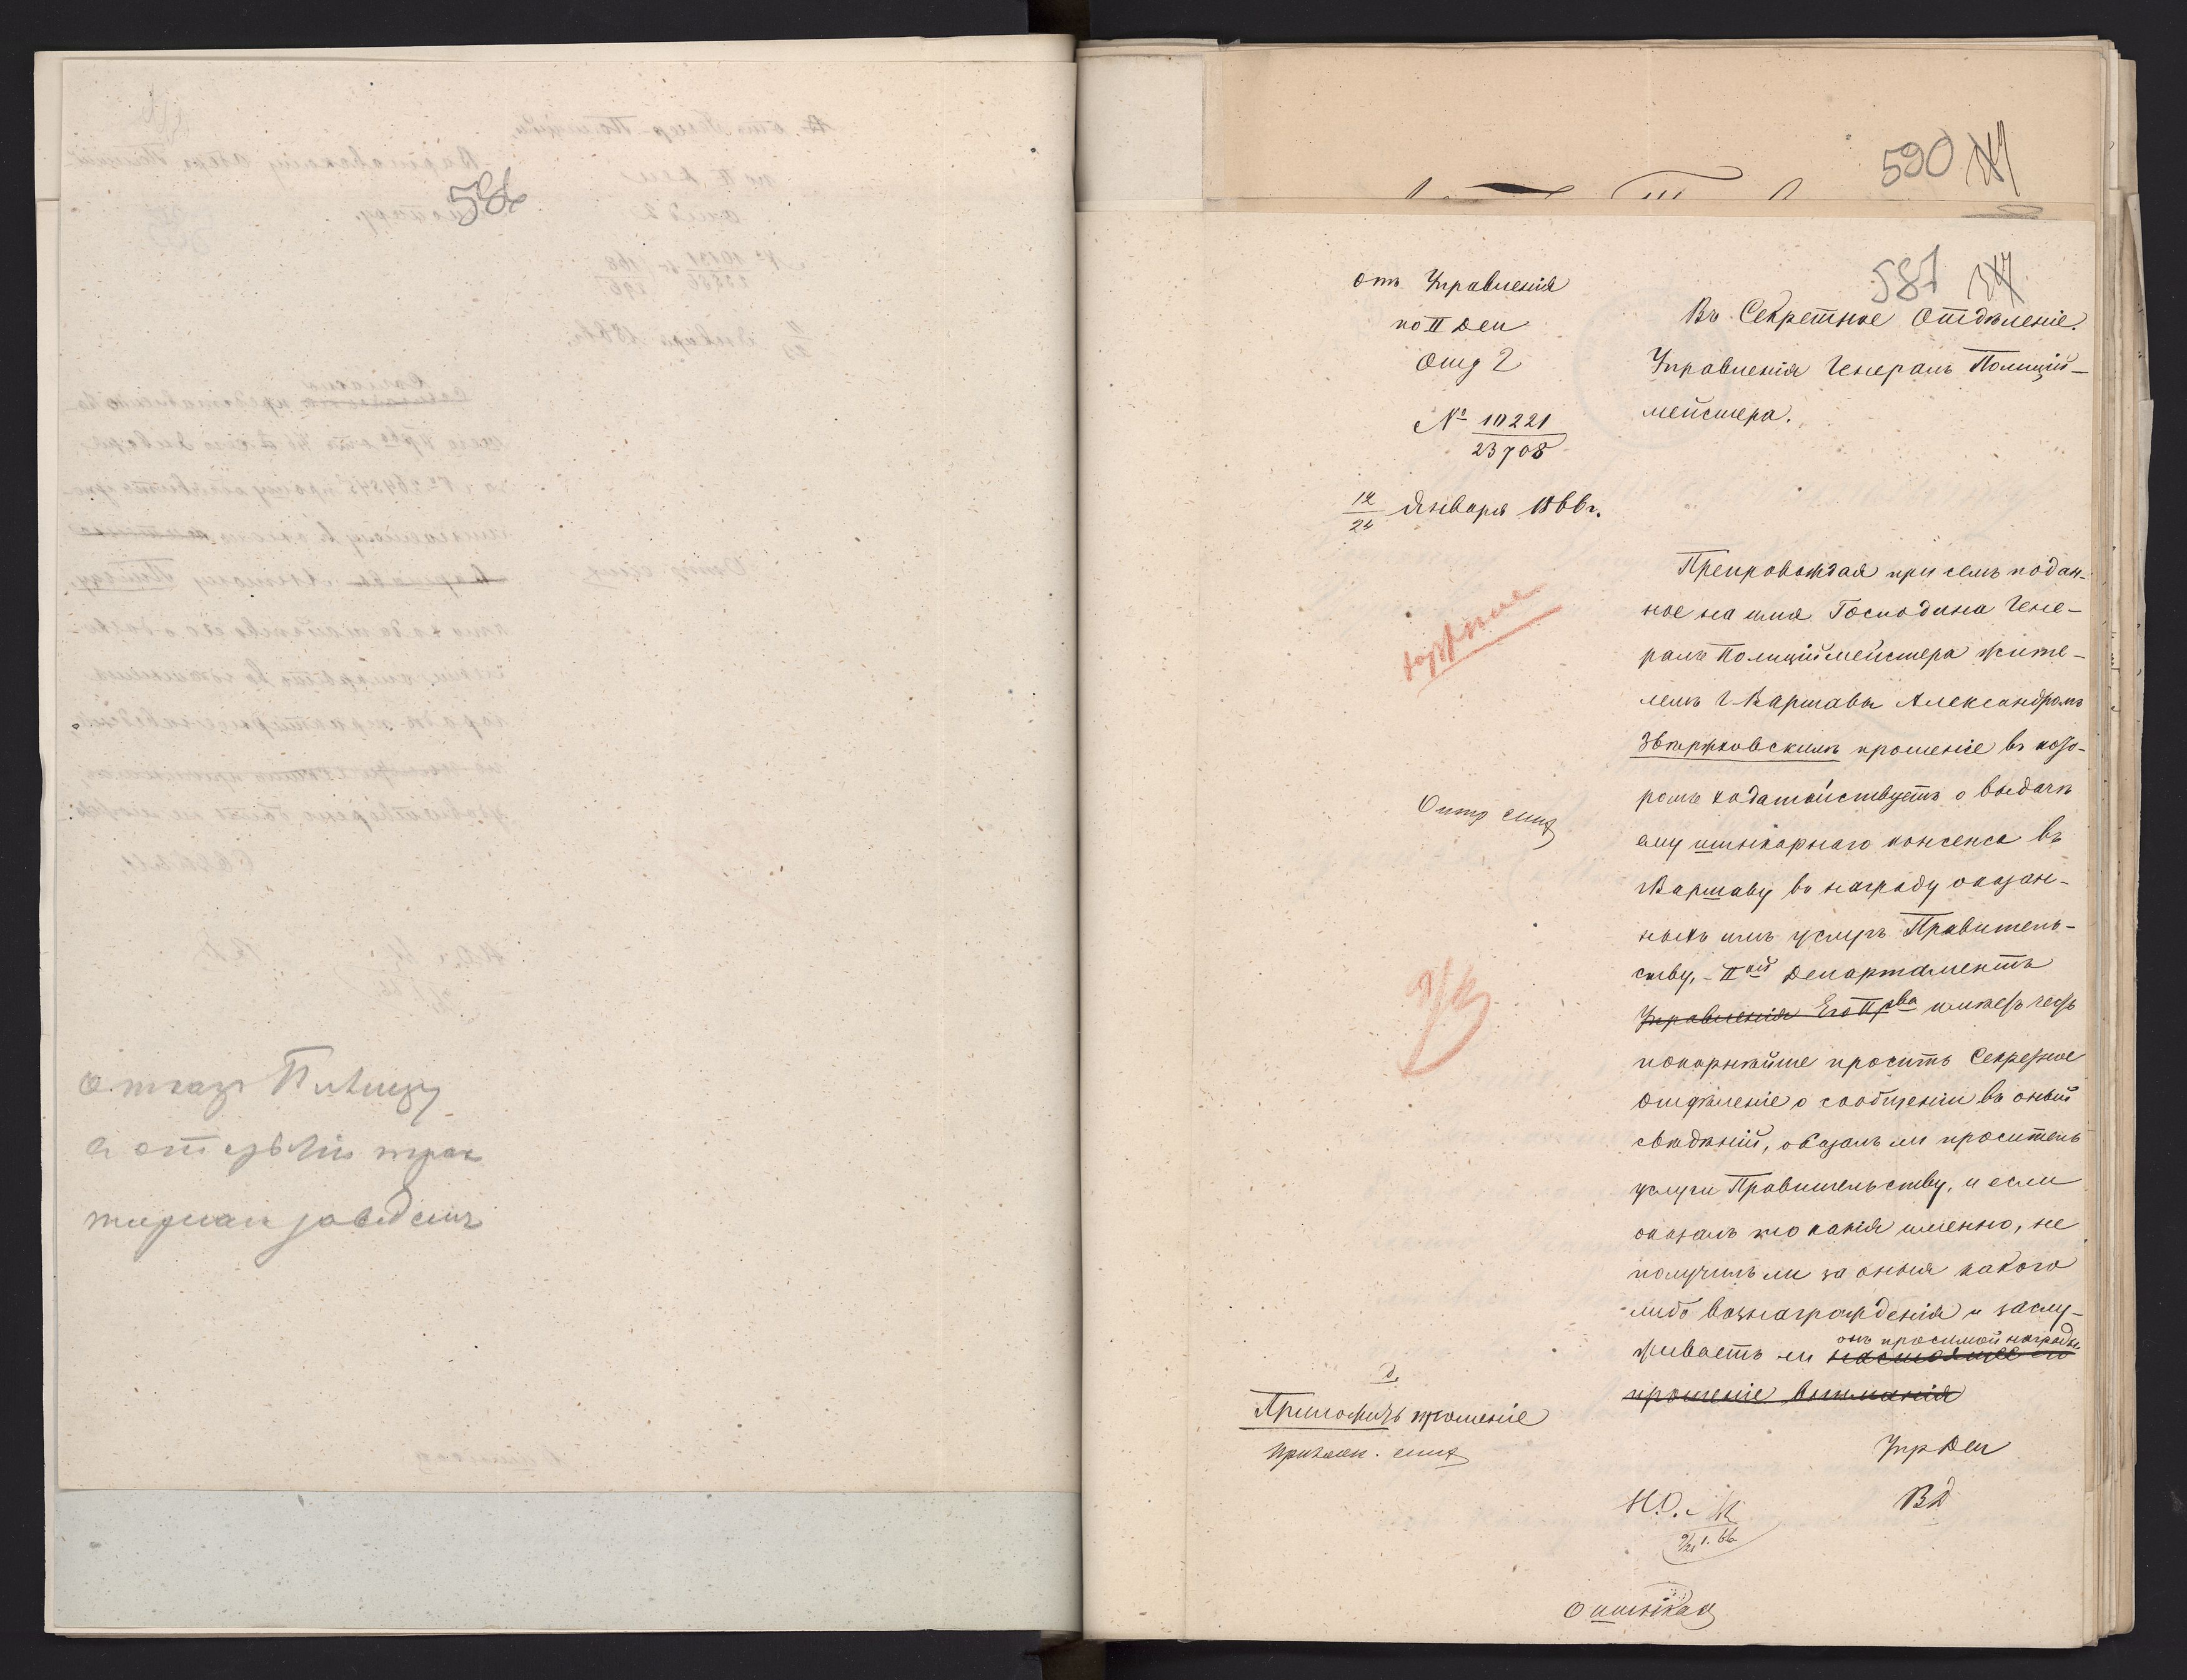 586
Отказъ Пильцу
въ откр. трак
тирнаго заведенія
590
587
отъ Управленія
по II Деп
Отд 2
№ 10221
23708
12
24 Января 1866 г.
Отпр
Приложить прошеніе
Въ Секретное Отдѣленіе
Управленія Генералъ Полицій-
мейстера.
Препровождая при семъ подан-
ное на имя Господина Гене-
ралъ Полиціймейстера жите-
лемъ г. Варшавы Александромъ
Звѣржховскимъ прошеніе въ кото-
ромъ ходатайствуетъ о выдачѣ
ему шинкарнаго консенса въ
г Варшаву въ награду оказан-
ныхъ имъ услугъ Правитель-
ству, – IIой Департаментъ
Управленія Его Прва имѣетъ честь
покорнѣйше просить Секретное
Отдѣленіе о сообщеніи въ оный
свѣдѣній, оказалъ ли проситель
услуги Правительству, и если
оказалъ то какія именно, не
получилъ ли за оныя какого
либо вознагражденія и заслу-
онъ просимой награды.
живаетъ ли настоящее его
прошеніе вниманія
Упр Деп
ВД
Н.О.
9/21 1. 66